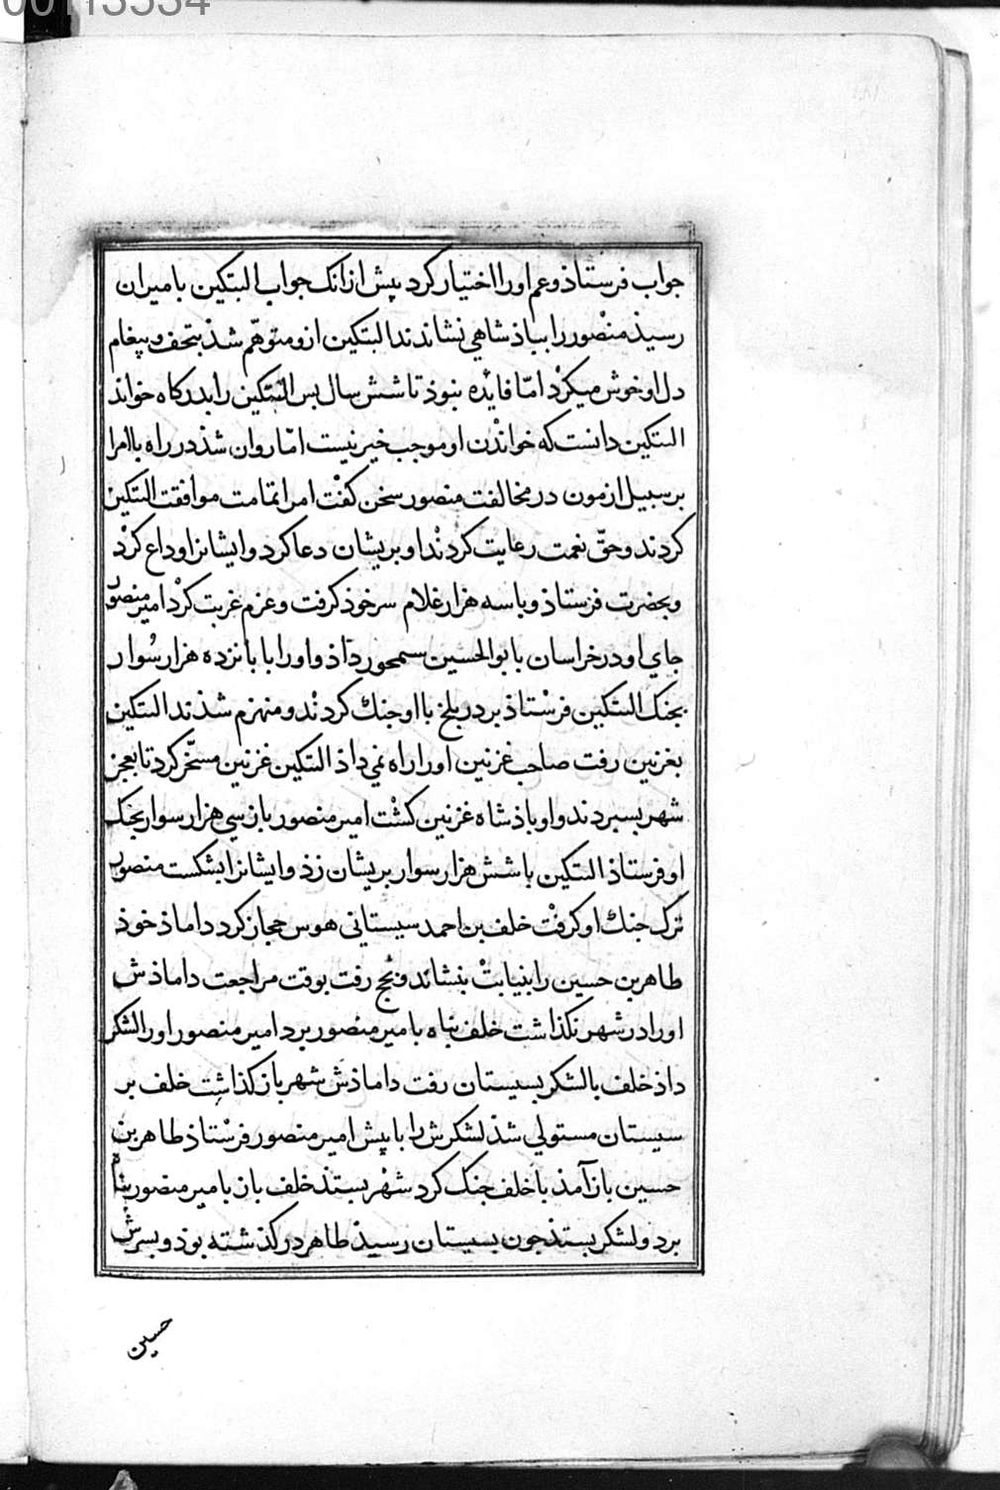 00113534
جواب فرستاذ و عم او را اختیار کرد پیش ازانک جواب البتکین بامیران
رسیذ منصور را بباذشاهی نشاندند البتکین ازو متوهّم شذ بتحف و پیغام
دل او خوش میکرد امّا فایده نبوذ تا شش سال بس البتکین را بدرکاه خواند
البتکین دانست که خواندن او موجب خیر نیست امّا روان شذ در راه با امرا
بر سبیل ازمون در مخالفت منصور سخن کفت امرا بتمامت موافقت البتکین
کردند و حقّ نعمت رعایت کردند او بریشان دعا کرد و ایشانرا وداع کرد
و بحضرت فرستاذ و با سه هزار غلام سر خوذ کرفت و عزم غربت کرد امیر منصور
جای او در خراسان بابو الحسین سیمجور داذ و او را با بانزده هزار سوار
بجنک البتکین فرستاذ بر در بلخ با او جنک کردند و منهزم شذند البتکین
بغزنین رفت صاحب غزنین او را راه نمی داذ البتکین غزنین مسخّر کرد تا بعجز
شهر بسبردند و او باذشاه غزنین کشت امیر منصور باز سی هزار سوار بجنک
او فرستاذ البتکین با شش هزار سوار بریشان زذ و ایشانرا بشکست منصور
ترک جنک او کرفت خلف بن احمد سیستانی هوس حجاز کرد داماذ خوذ
طاهر بن حسین را بنیابت بنشاند و بحج رفت بوقت مراجعت داماذش
او را در شهر نکذاشت خلف بناه بامیر منصور برد امیر منصور او را لشکر
داذ خلف با لشکر بسیستان رفت داماذش شهر باز کذاشت خلف بر
سیستان مستولی شذ لشکرش را با پیش امیر منصور فرستاذ طاهر بن
حسین باز آمذ با خلف جنک کرد شهر بستذ خلف باز بامیر منصور بناه
برد و لشکر بستذ جون بسیستان رسیذ طاهر در کذشته بوذ و بسرش
حسین